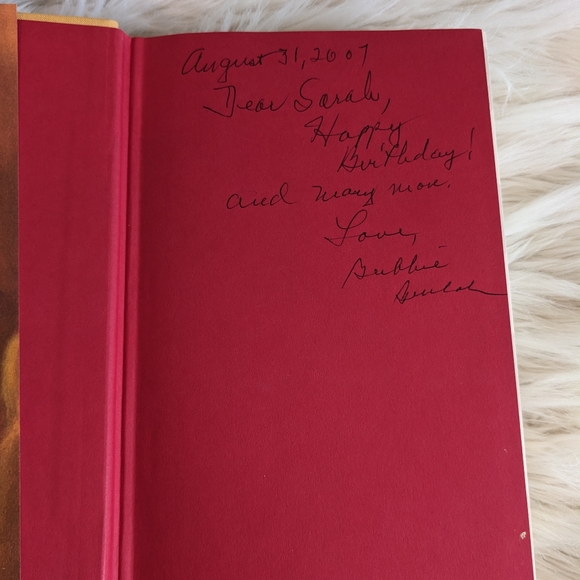 August 31, 2007
Dear Sarah,
Happy
Birthday!
and many more.
Love,
Bubbie
Beulah